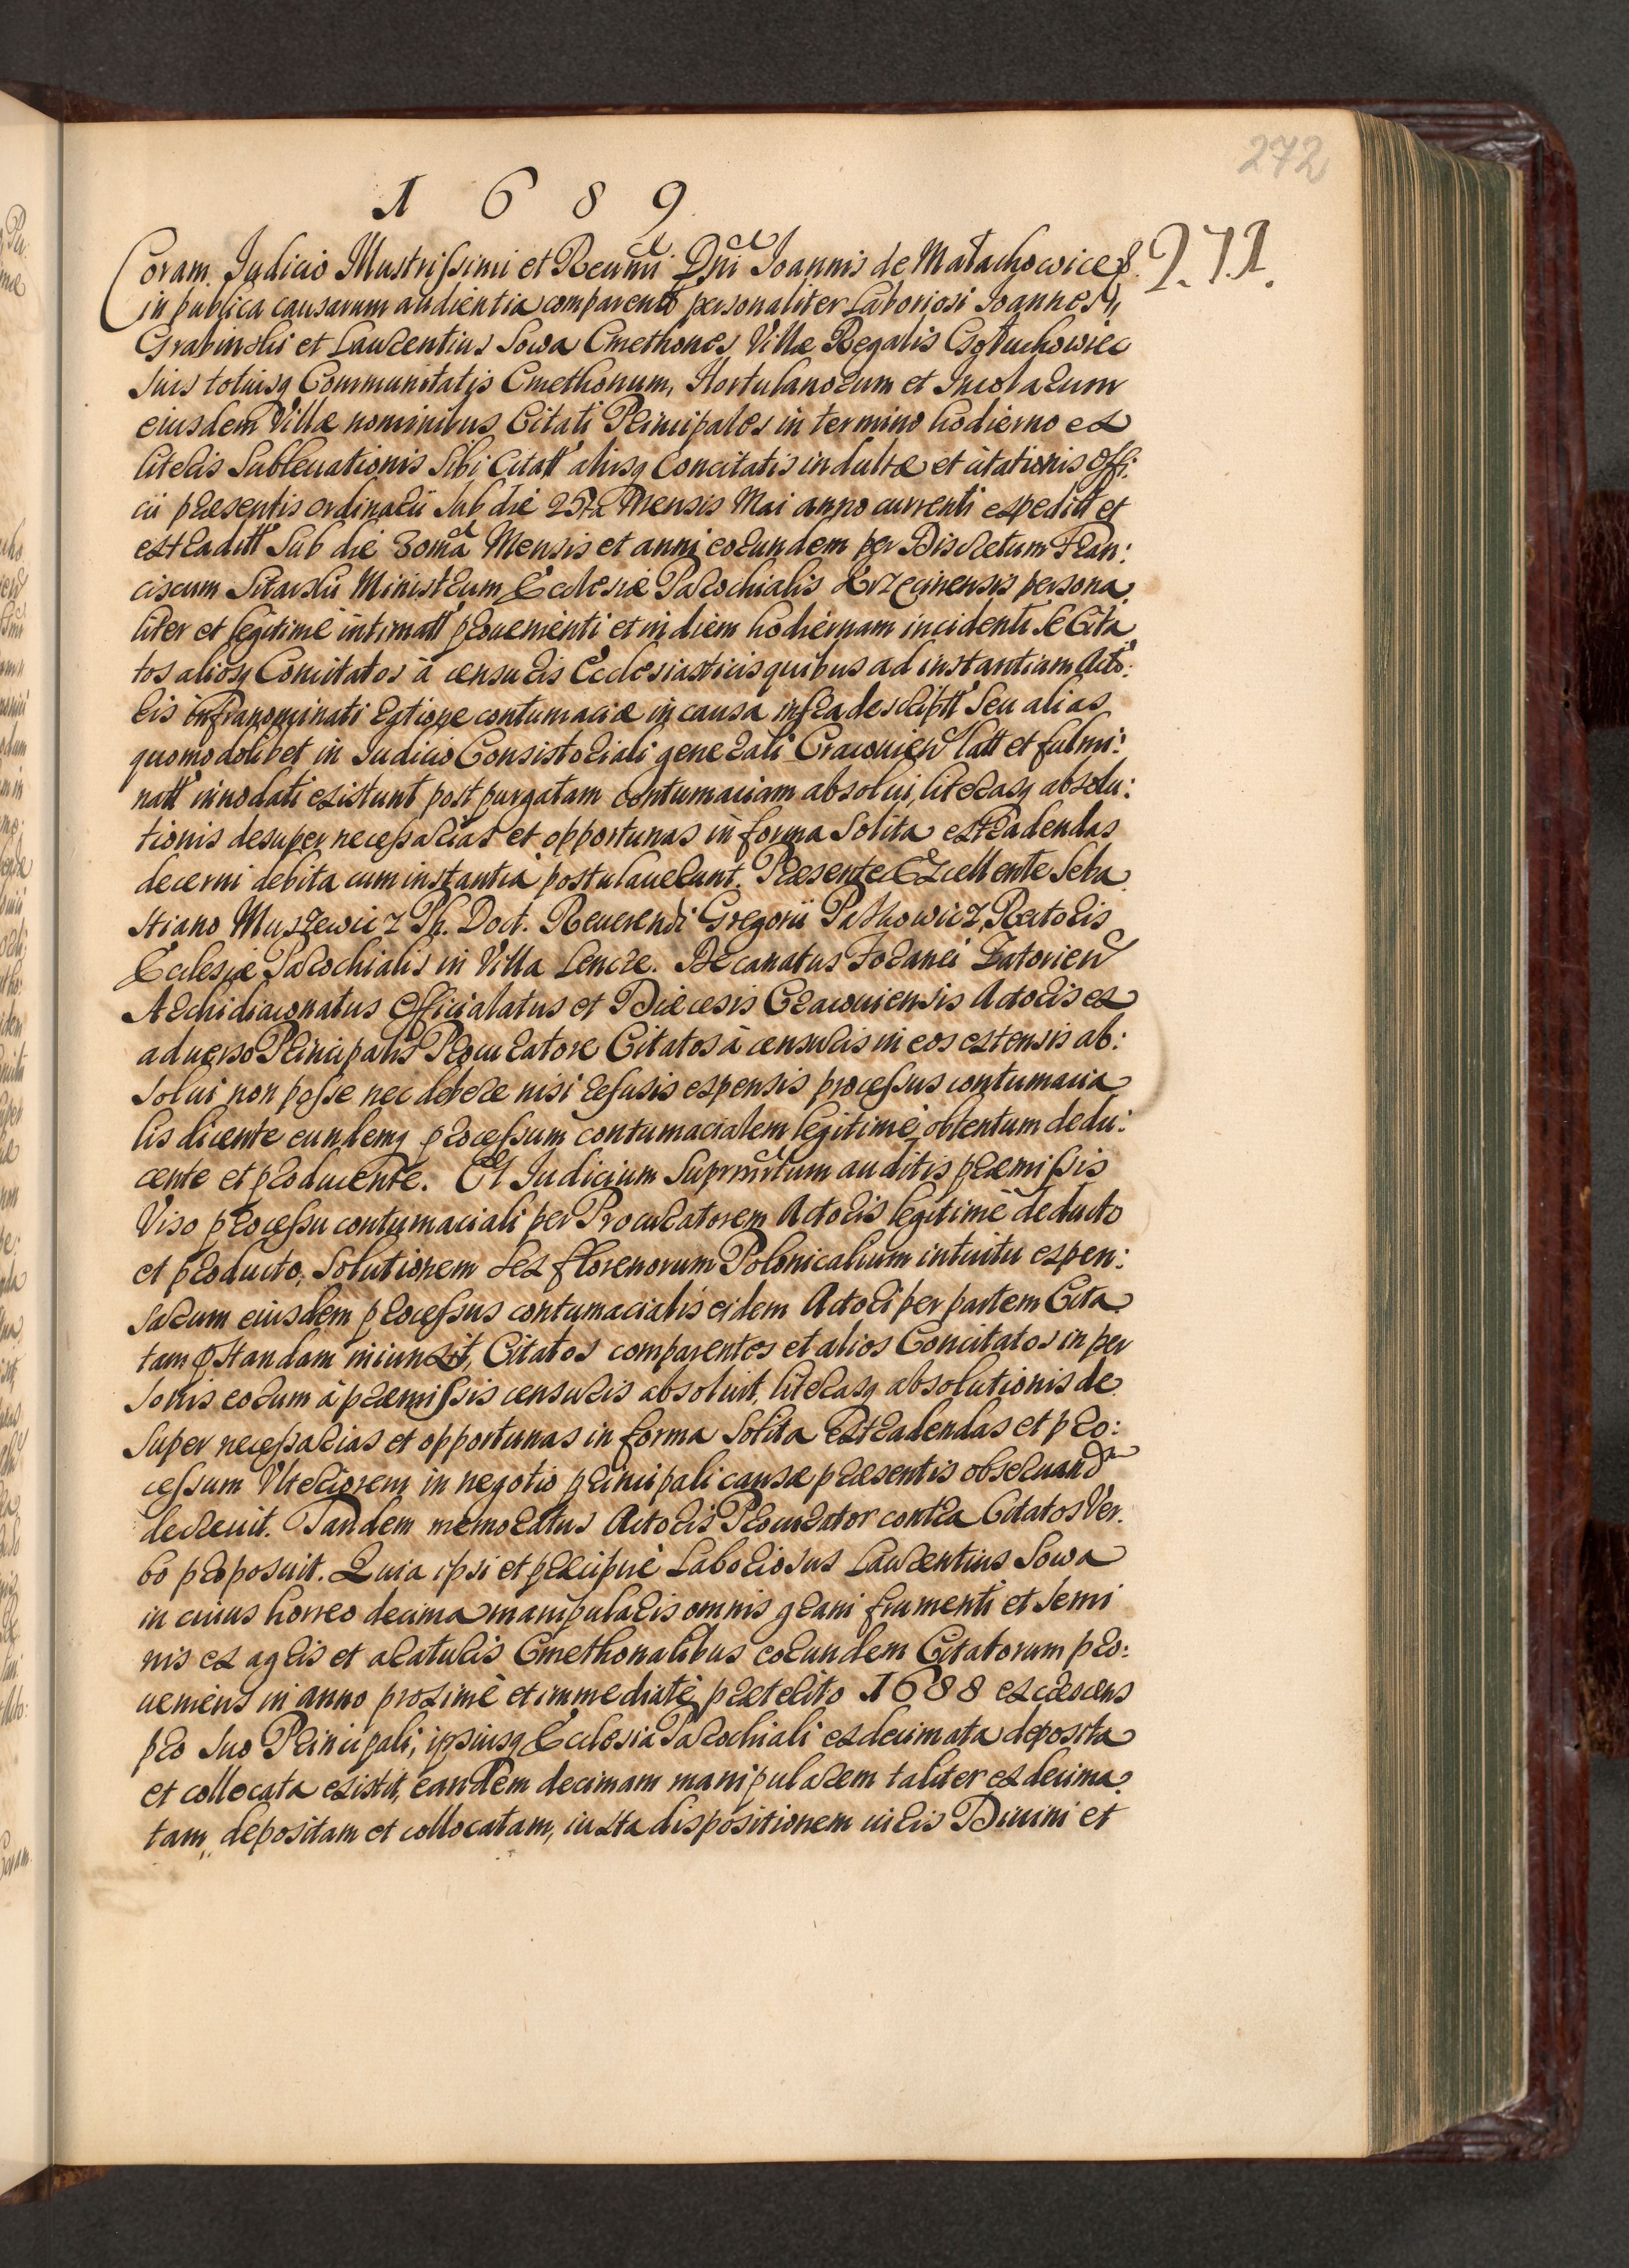 272
1 6 8 9
271.
Coram Judicio Illustrissimi et Reumi Dni Joannis de Małachowice &.
in publica causarum audientia comparentes personaliter Laboriosi Joannes
Grabinski et Laurentius Sowa Cmethones Villæ Regalis Głuchowiec
suis totiusq Communitatis Cmethonum, Hortulanorum et Incolarum
eiusdem Villæ nominibus Citati Principales in termino hodierno ex
literis Subleuationis Sibi Citatt aliisq Concitatis indultæ et citationis offi:
cii præsentis ordinarii sub die 25ta Mensis Mai anno currenti expeditt et
extraditt Sub die 30ma Mensis et anni eorundem per Discretum Fran:
ciscum Sitarski Ministrum Ecclesiæ Parochialis Krzecinensis persona
liter et legitime intimatt prouenienti et in diem hodiernam incidenti se Cita
tos aliosq Concitatos à censuris Ecclesiasticis quibus ad instantiam Acto:
ris infranominati rãtione contumaciæ in causa infradescriptt Seu alias
quomodolibet in Judicio Consistoriali generali Cracouien latt et fulmi:
natt innodati existunt post purgatam contumaciam absolui, literasq absolu:
tionis desuper necessarias et opportunas in forma Solita extradendas
decerni debita cum instantia postulauerunt. Præsente Excellente Seba
stiano Muszewicz Ph. Doct. Reuerendi Gregorii Patkowicz, Rectoris
Ecclesiæ Parochialis in Villa Lencze. Decanatus Foranei Zatorien
Archidiaconatus Officialatus et Diæcesis Cracouiensis Actoris ex
aduerso Principalis Procuratore Citatos à censuris in eos extensis ab:
solui non posse nec debere nisi refusis expensis processus contumacia
lis dicente eundemq processum contumacialem legitimè obtentum dedu:
cente et producente. Et Judicium Suprmtum auditis præmissis
Viso processu contumaciali per Procuratorem Actoris legitimè deducto
et producto, Solutionem sex florenorum Polonicalium intuitu expen:
sarum eiusdem processus contumacialis eidem Actori per partem Cita
tam præstandam iniunxit, Citatos comparentes et alios Concitatos in per
sonis eorum à præmissis censuris absoluit, literasq absolutionis de
super necessarias et opportunas in forma Solita extradendas et pro:
cessum Vlteriorem in negotio principali causæ præsentis obseruand
decreuit. Tandem memoratus Actoris Procurator contra Citatos Ver
bo proposuit. Quia ipsi et præcipuè Laboriosus Laurentius Sowa
in cuius horreo decima manipularis omnis grani frumenti et semi
nis ex agris et araturis Cmethonalibus eorundem Citatorum pro:
ueniens in anno proximè et immediatè præterito 1688 excrescens
pro suo Principali, ipsiusq Ecclesia Parochiali exdecimata deposita
et collocata existit, eandem decimam manipularem taliter exdecima
tam, depositam et collocatam, iuxta dispositionem iuris Diuini et